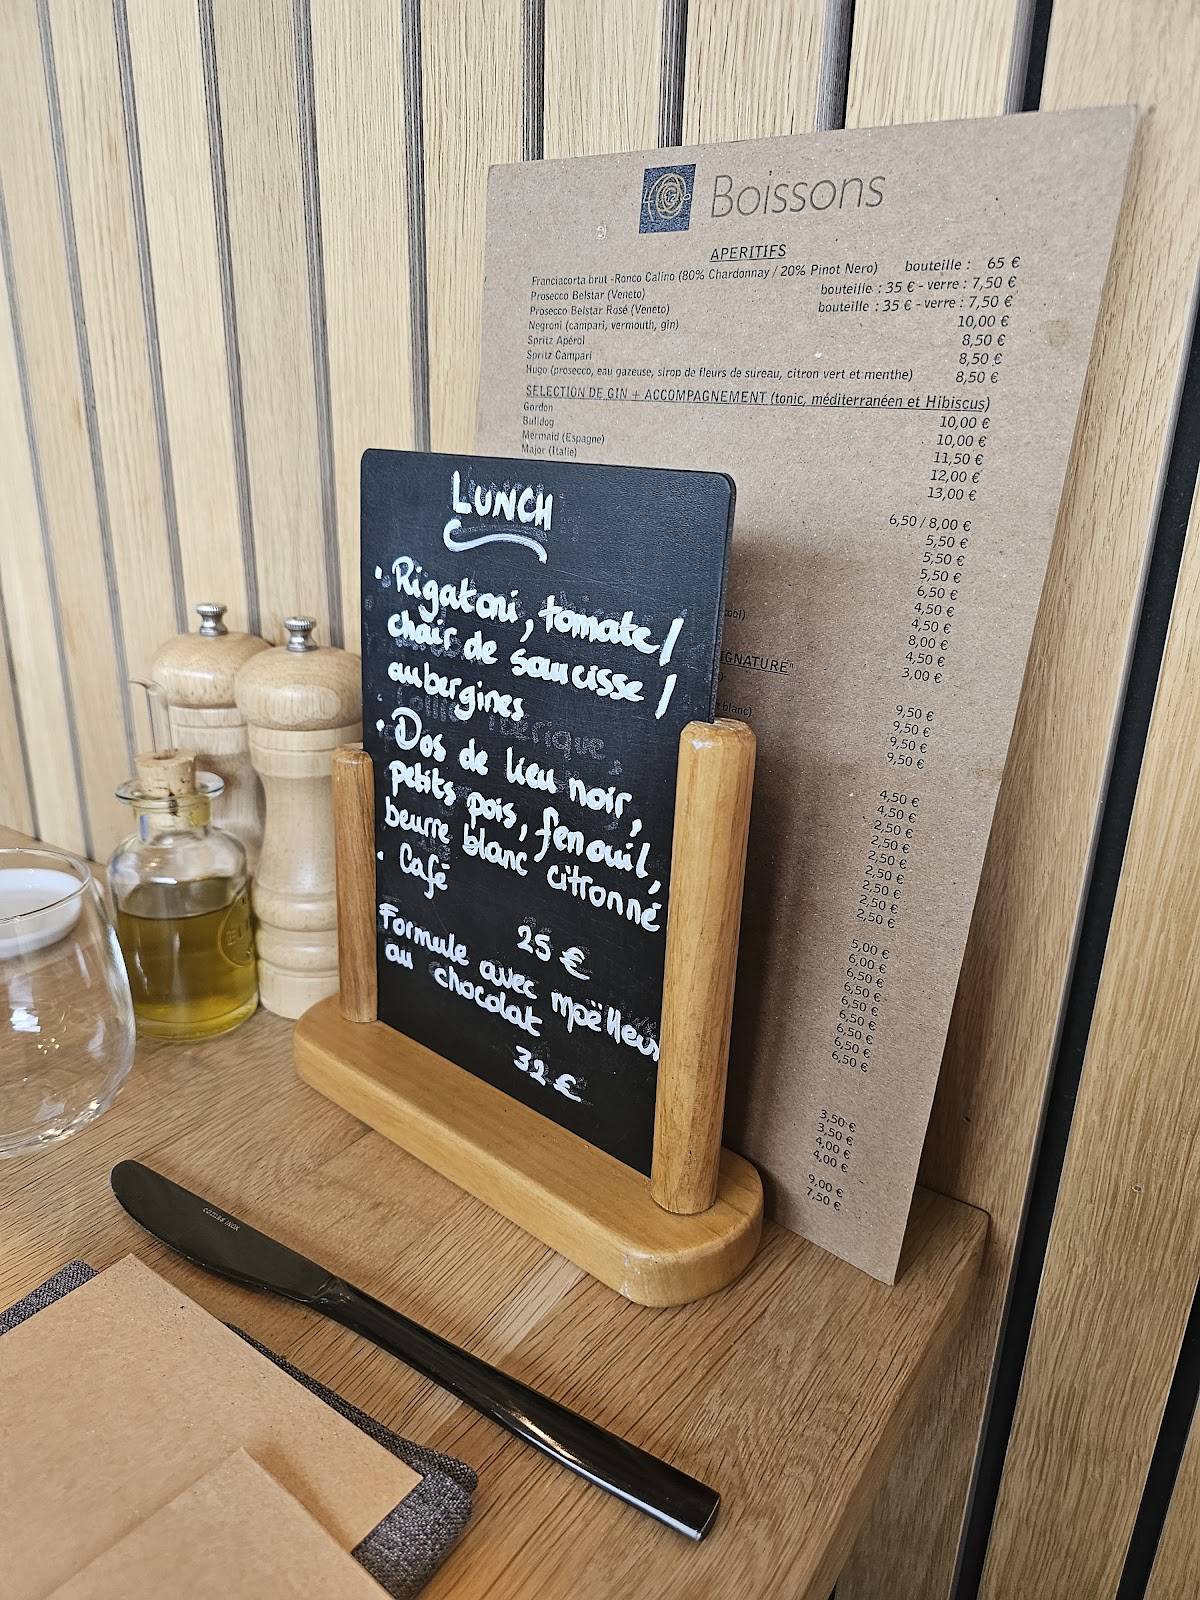 Boissons
APERITIFS
Franciacorta brut -Ronco Calino (80% Chardonnay / 20% Pinot Nero) bouteille : 65 €
Prosecco Belstar (Veneto) bouteille : 35 € - verre : 7,50 €
Prosecco Belstar Rosé (Veneto) bouteille : 35 € - verre : 7,50 €
Negroni (campari, vermouth, gin) 10,00 €
Spritz Apérol 8,50 €
Spritz Campari 8,50 €
Hugo (prosecco, eau gazeuse, sirop de fleurs de sureau, citron vert et menthe) 8,50 €
SELECTION DE GIN + ACCOMPAGNEMENT (tonic, méditerranéen et Hibiscus)
Gordon 10,00 €
Bulldog 10,00 €
Mermaid (Espagne) 11,50 €
Major (Italie) 12,00 €
13,00 €
6,50 / 8,00 €
5,50 €
5,50 €
5,50 €
6,50 €
4,50 €
4,50 €
8,00 €
4,50 €
3,00 €
IGNATURE"
blanc)
9,50 €
9,50 €
9,50 €
9,50 €
4,50 €
4,50 €
2,50 €
2,50 €
2,50 €
2,50 €
2,50 €
2,50 €
5,00 €
6,00 €
6,50 €
6,50 €
6,50 €
6,50 €
6,50 €
6,50 €
3,50 €
3,50 €
4,00 €
4,00 €
9,00 €
7,50 €
LUNCH
· Rigatoni, tomate /
chair de saucisse /
aubergines
· Dos de lieu noir,
petits pois, fenouil,
beurre blanc citronné
· Café
25 €
Formule avec moëlleux
au chocolat
32 €